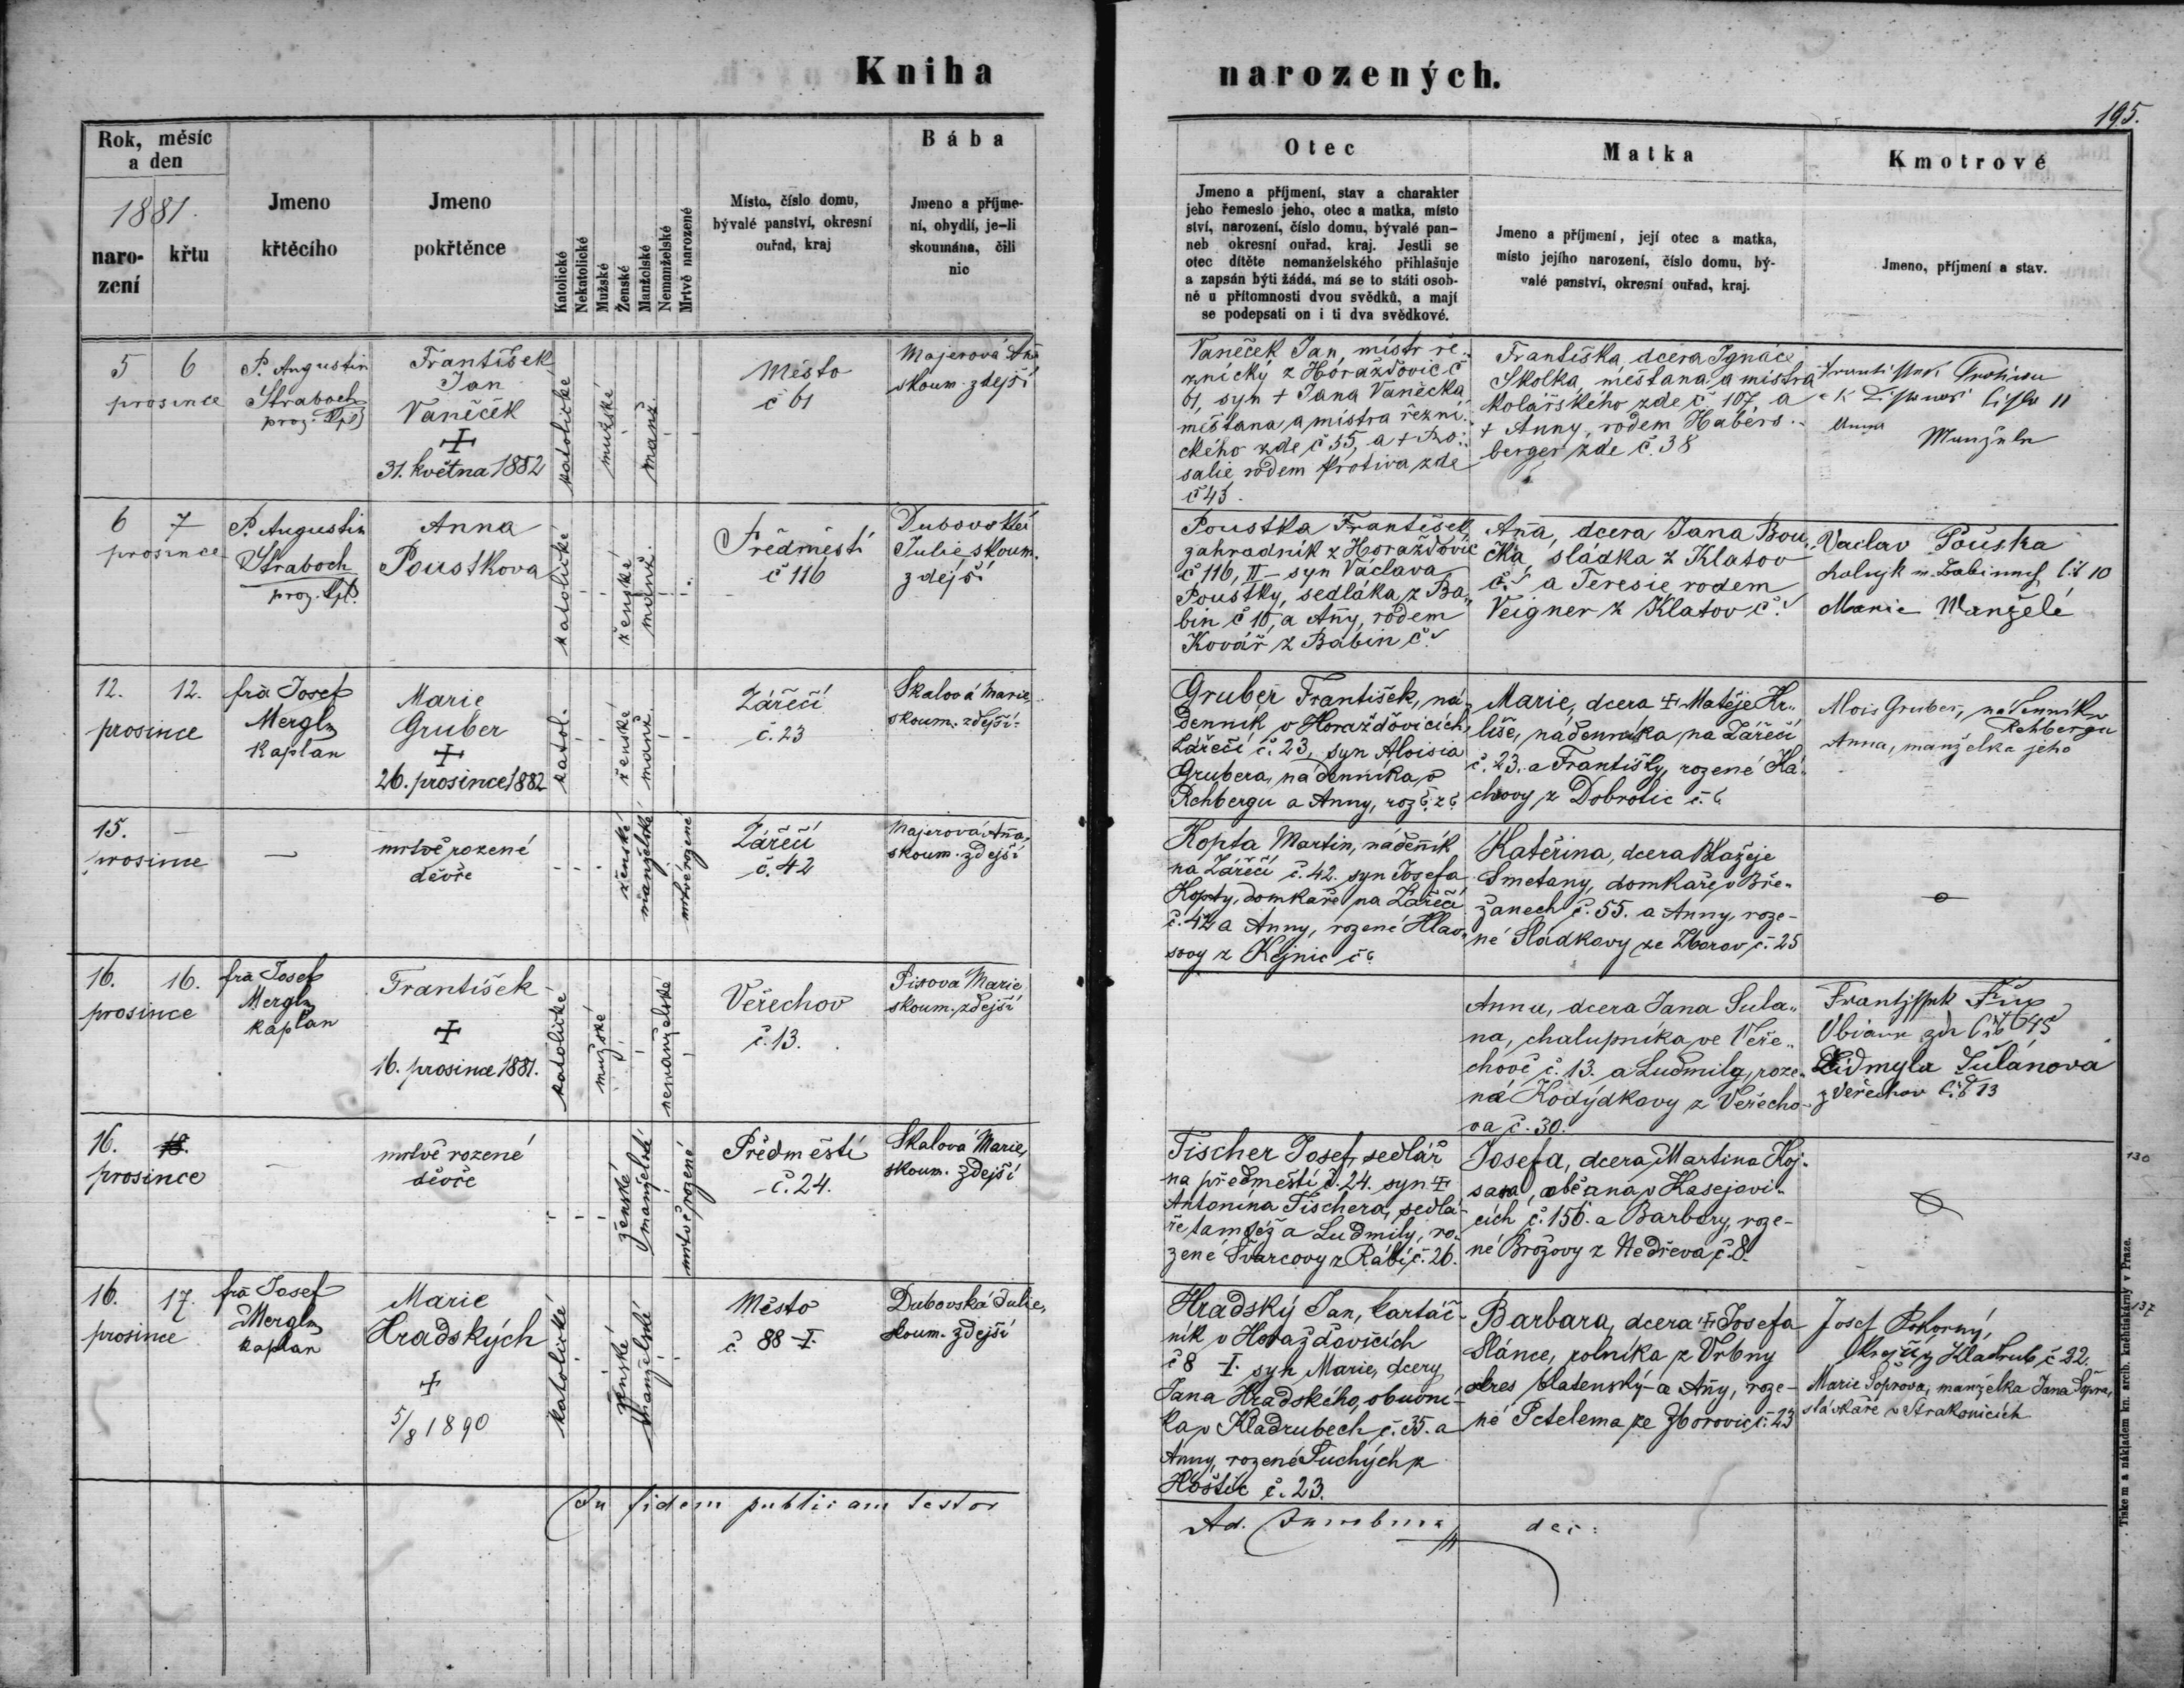 Kniha narozených.
195.
Rok, měsíc
a den
1881.
naro-
zení
křtu
Jmeno
křtěcího
Jmeno
pokřtěnce
Katolické
Nekatolické
Mužské
Ženské
Manželské
Nemanželské
Mrtvě narozené
Místo, číslo domu,
bývalé panství, okresní
ouřad, kraj
Bába
Jmeno a příjme-
ní, obydlí, je-li
skoumána, čili
nic
Otec
Jmeno a příjmení, stav a charakter
jeho řemeslo jeho, otec a matka, místo
ství, narození, číslo domu, bývalé pan-
neb okresní ouřad, kraj. Jestli se
otec dítěte nemanželského přihlašuje
a zapsán býti žádá, má se to státi osob-
ně u přítomnosti dvou svědků, a mají
se podepsati on i ti dva svědkové.
Matka
Jmeno a příjmení, její otec a matka,
místo jejího narození, číslo domu, bý-
valé panství, okresní ouřad, kraj.
Kmotrové
Jmeno, příjmení a stav.
5 6
prosince
P. Augustin
Straboch
František
Jan
Vaněček
+
31. května 1882
katolické
mužské
manž.
Město
č 61
Majerová
skoum. zdejší
Vaněček Jan, mistr ře-
znický z Horažďovic č
61, syn + Jana Vaněčka
měštana a mistra řezni-
ckého zde č 55, a + Ro-
salie rodem Protiva zde
č 43.
Františka, dcera Ignáce
Skolka, měštana a mistra
kolářského zde č 107 a
+ Anny, rodem Habers-
berger zde č. 38
6 7
prosince
P. Augustin
Straboch
Anna
Poustkova
katolické
ženské
manž.
Předměstí
č 116
Dubovská
Julie skoum.
zdejší
Poustka František
zahradník z Horažďovic
č 116, II syn Václava
Poustky, sedláka z Ba-
bin č 10, a Anny, rodem
Kovář z Babin č
Anna, dcera Jana Bou-
čka, sládka z Klatov
č. a Teresie rodem
Veigner z Klatov č.
Vaclav Pouska
10
Marie Manželé
12. 12.
prosince
fra Josef
Mergl
kaplan
Marie
Gruber
+
26. prosince 1882
katol.
ženské
manž.
Zářečí
č. 23
Skalová Marie,
skoum. zdejší
Gruber František, ná-
denník v Horažďovicích,
Zářečí č. 23, syn Aloisia
Grubera, nádenníka v
Rehbergu a Anny, roz. č. z č.
Marie, dcera + Matěje Hr-
liše, nádenníka na Zářečí
č. 23. a Františky, rozené Há-
chovy z Dobrotic č.
Alois Gruber, nádenník v
Rehbergu
Anna, manželka jeho
15.
prosince
mrtvě rozené
děvče
ženské
manželské
mrtvě rozené
Zářečí
č. 42
Majerová Anna,
skoum. zdejší
Kopta Martin, nádenník
na Zářečí č. 42. syn Josefa
Kopty, domkáře na Zářečí
č. 42 a Anny, rozené Hlav-
sovy z Kejnic č
Kateřina, dcera Blažeje
Smetany, domkáře v Bře-
žanech č. 55. a Anny, roze-
né Sládkovy ze Zborov č. 25
16. 16.
prosince
fra Josef
Mergl
kaplan
František
+
16. prosince 1881.
katolické
mužské
nemanželské
Veřechov
č. 13.
Marie
skoum. zdejší
Anna, dcera Jana Sula-
na, chalupníka ve Veře-
chově č. 13. a Ludmily, roze-
né Kodýdkovy z Veřecho-
va č. 30.
45
Lidmyla Sulánova
z Veřechov 13
16. 18.
prosince
mrtvě rozené
děvče
ženské
manželské
mrtvě rozené
Předměstí
č. 24.
Skalová Marie,
skoum. zdejší
Fischer Josef, sedlář
na předměstí č. 24. syn +
Antonína Fischera, sedlá-
ře tamtéž a Ludmily, ro-
zené Švarcovy z Rábí č. 26.
Josefa, dcera Martina Koj-
sara, občana v Kasejovi-
cích č. 156. a Barbory, roze-
né Brožovy z Nedřeva č. 8.
130
16. 17.
prosince
fra Josef
Mergl
kaplan
Marie
Hradských
+
5/8 1890
katolické
ženské
manželské
Město
č. 88 - I.
Dubovská Julie,
skoum. zdejší
Hradský Jan, kartáč-
ník v Horažďovicích
č 8 - I. syn Marie, dcery
Jana Hradského, obuvní-
ka v Kladrubech č. 35. a
Anny, rozené Suchých z
Hoštic č. 23.
Barbara, dcera + Josefa
Slánce, rolníka z Vrbny
okres blatenský a Anny, roze-
né Petelema ze Zborovic č. 23
Josef Pokorný,
krejčí z Kladrub č 22.
Marie Šoprova, manželka Jana Šopra,
slávkáře v Strakonicích
137
In fidem publicam testor
Tiskem a nákladem kn. arcib. knihtiskárny v Praze.